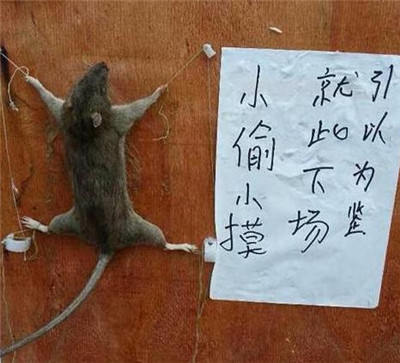 引以为鉴
就此下场
小偷小摸